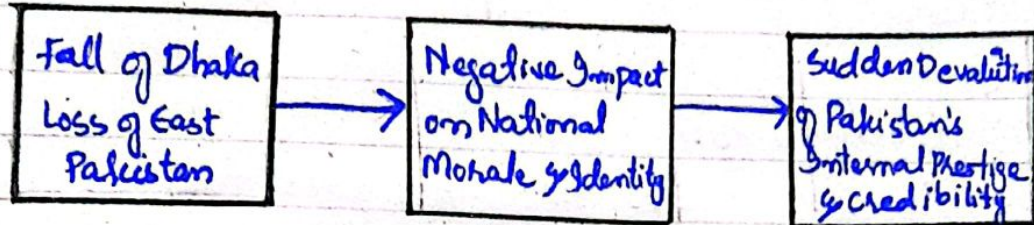 Fall of Dhaka
Loss of East
Pakistan
Negative Impact
on National
Morale & Identity
Sudden Devaluation
of Pakistan's
Internal Prestige
& credibility